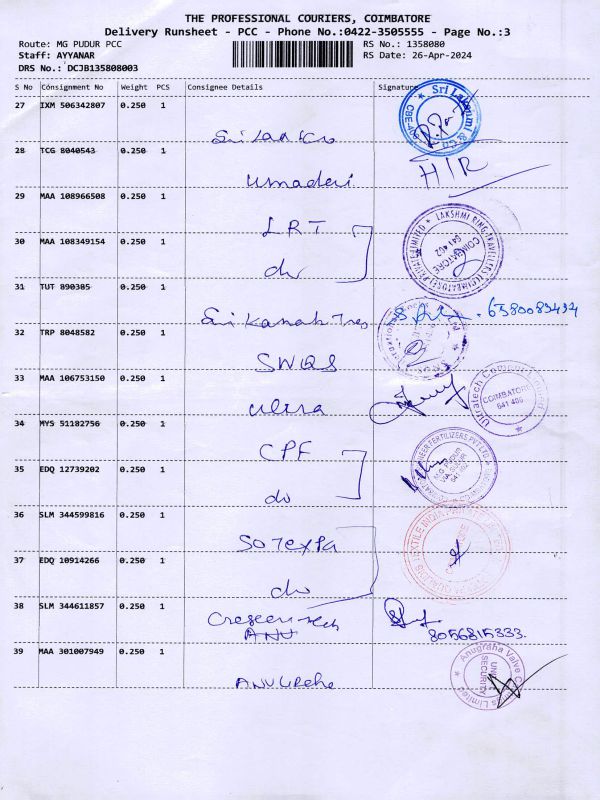 THE PROFESSIONAL COURIERS, COIMBATORE
Delivery Runsheet - PCC - Phone No.:0422-3505555 - Page No.:3
Route: MG PUDUR PCC
RS No.: 1358080
Staff: AYYANAR
RS Date: 26-Apr-2024
DRS No.: DCJB135808003
S No Consignment No Weight PCS Consignee Details Signature
27 IXM 506342807 0.250 1
Sri Lakshmi & Co
28 TCG 8040543 0.250 1
Umadevi HIR
29 MAA 108966508 0.250 1
LRT
LAKSHMI RING TRAVELLERS (COIMBATORE) PRIVATE LIMITED
COIMBATORE
641 402
30 MAA 108349154 0.250 1
do
31 TUT 890305 0.250 1
Sri Kannab Tres 6380083434
32 TRP 8048582 0.250 1
SWQS
33 MAA 106753150 0.250 1
Ultra
COIMBATORE
641 406
34 MYS 51182756 0.250 1
CPF
FERTILIZERS PVT LTD
35 EDQ 12739202 0.250 1
do
36 SLM 344599816 0.250 1
SOTEXPA
37 EDQ 10914266 0.250 1
do
38 SLM 344611857 0.250 1
Crescent Tech
ANU
8056815333.
39 MAA 301007949 0.250 1
ANUGRaha
Anugraha Valve
UNIT
SECURITY